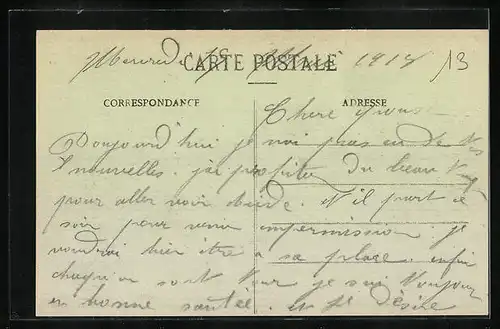 Mercredi 15 Mai 1918 13
CARTE POSTALE
CORRESPONDANCE
ADRESSE
Chere
Aoujourd'hui je nai pas eu de Vos
nouvelles. jai profiter du beau
pour aller voir . Et il part ce
soir pour venir empermission. je
voudrai bien être a sa place. enfin
chaqu'un sont tour je suis toujour
en bonne santée. et je désire